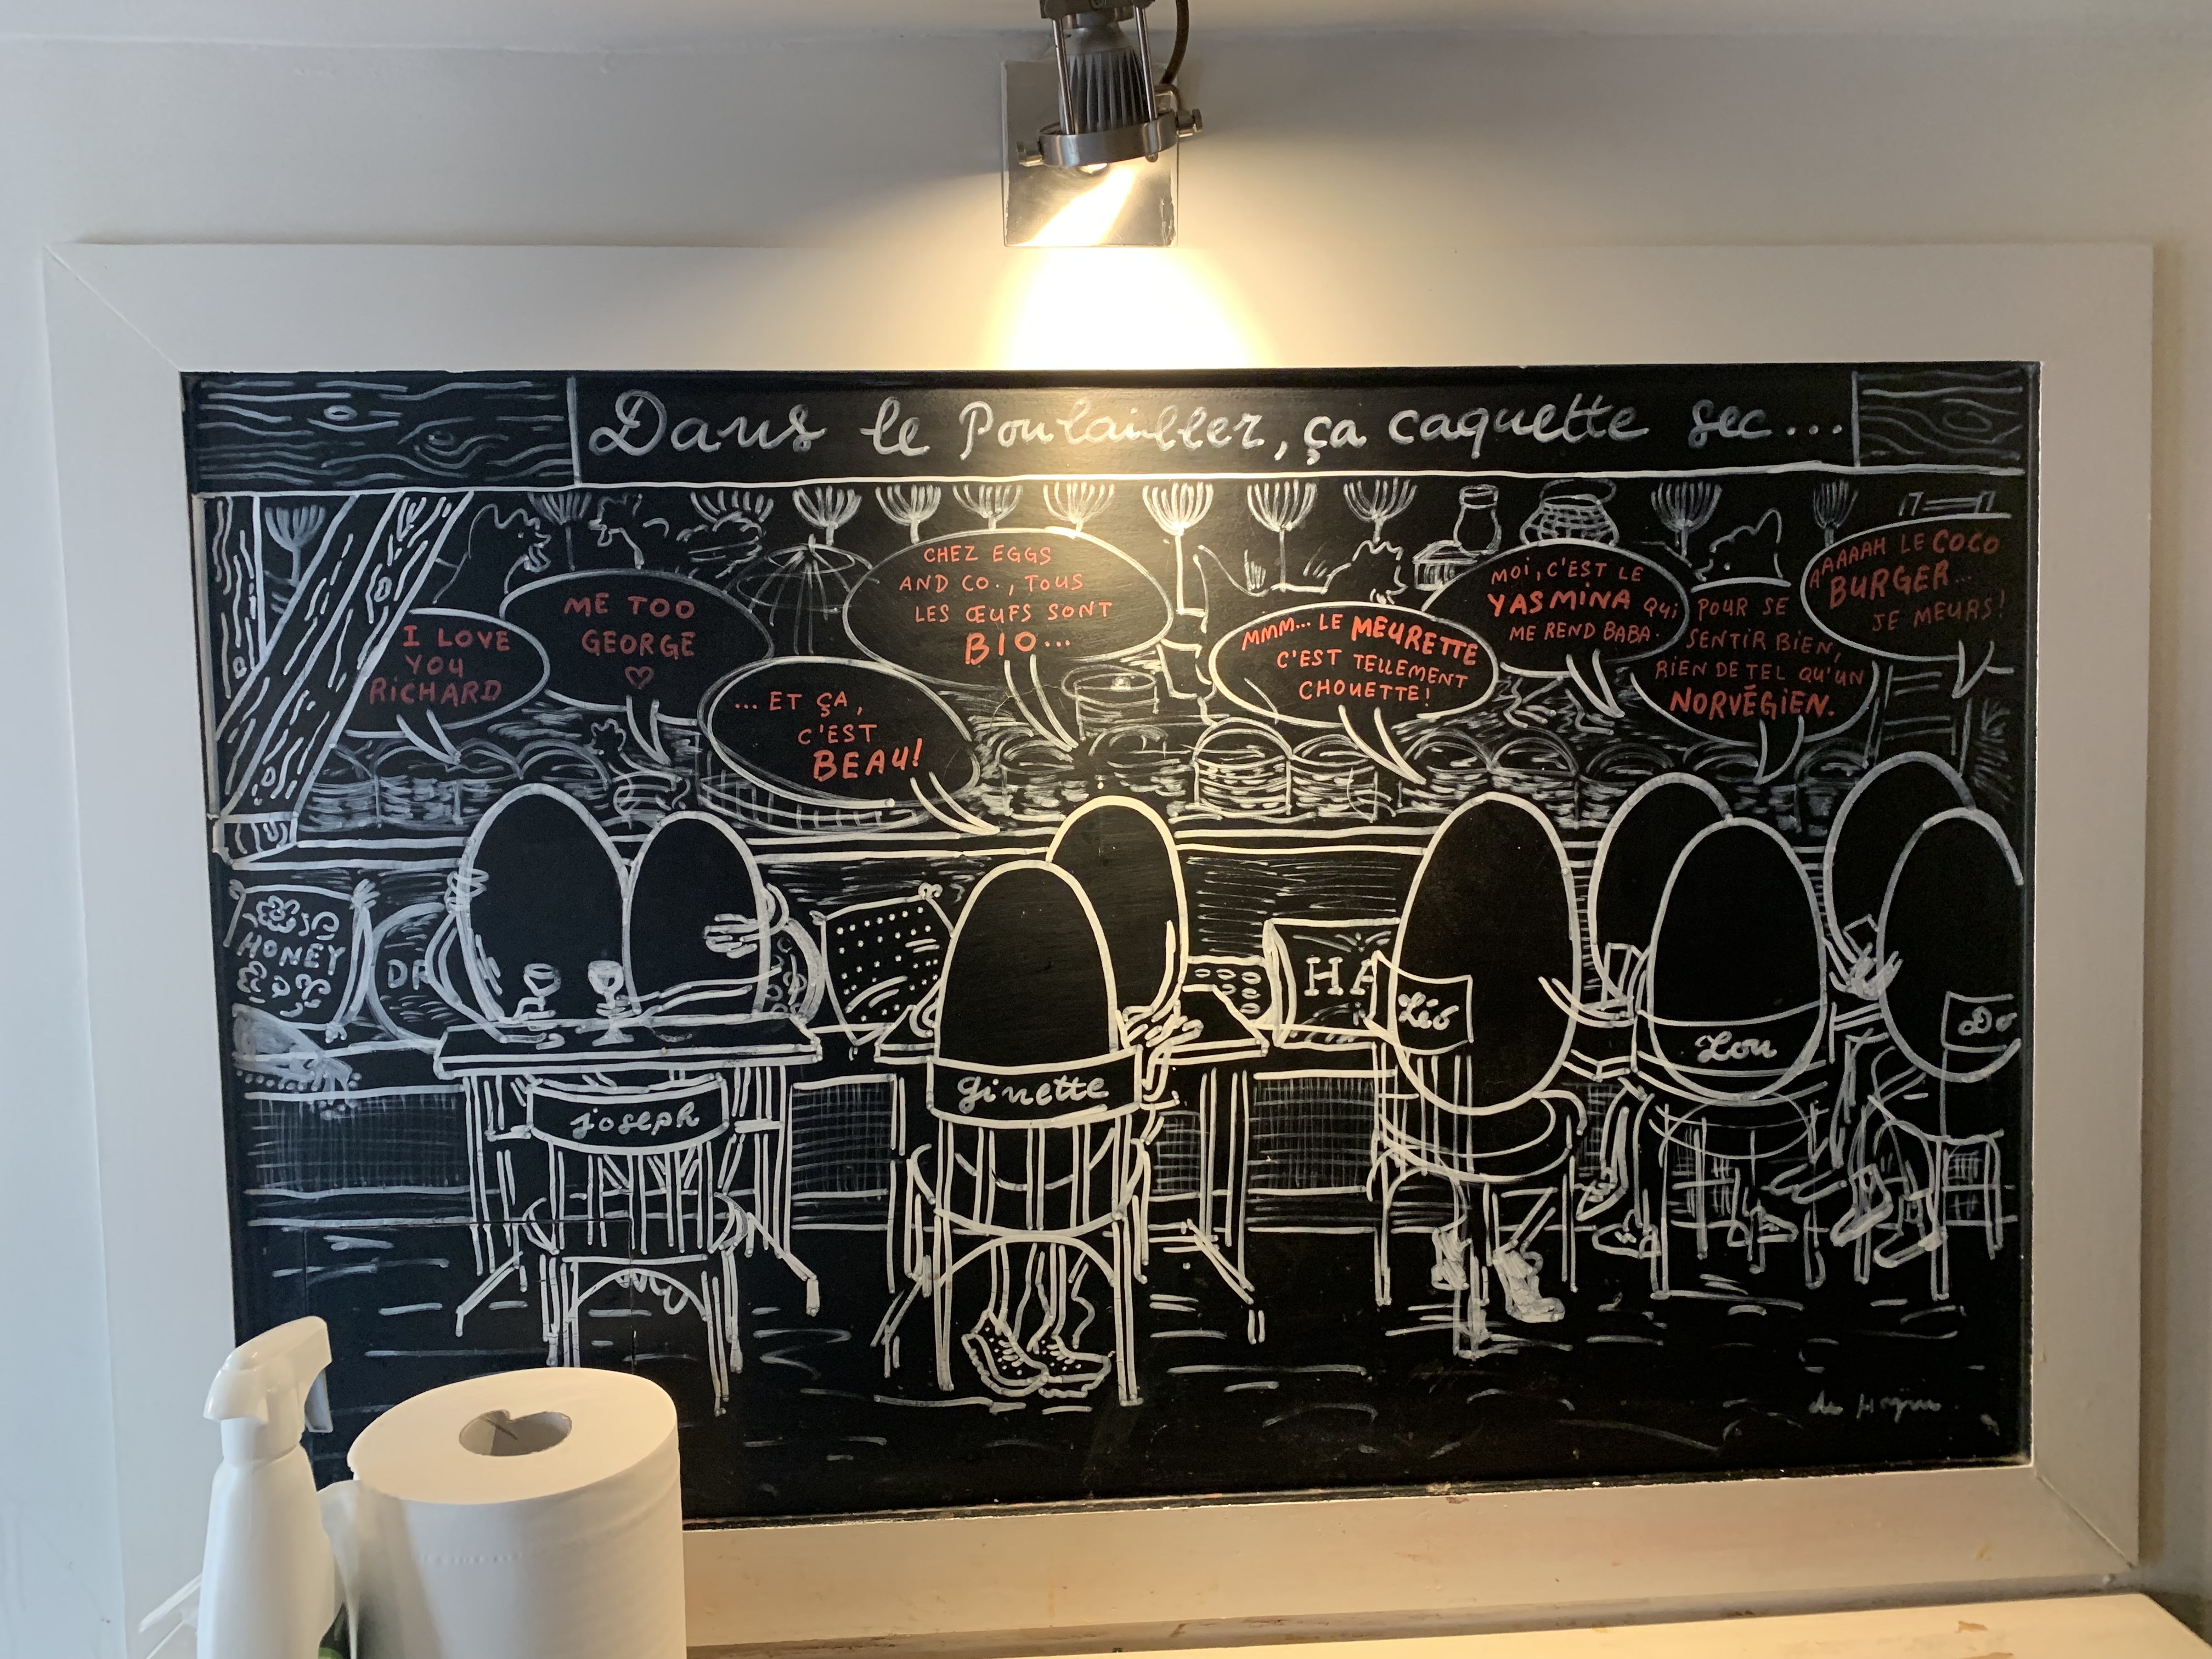 Dans le Poulailler, ça caquette sec...
I LOVE
YOU
RICHARD
ME TOO
GEORGE
♡
CHEZ EGGS
AND CO., TOUS
LES ŒUFS SONT
BIO...
... ET ÇA,
C'EST
BEAU!
MMM... LE MEURETTE
C'EST TELLEMENT
CHOUETTE!
MOI, C'EST LE
YASMINA QUi
ME REND BABA.
POUR SE
SENTIR BIEN,
RIEN DE TEL QU'UN
NORVÉGIEN.
AAAAAH LE COCO
BURGER...
JE MEURS!
HONEY
DR
HA
Léo
Lou
Do
ginette
joseph